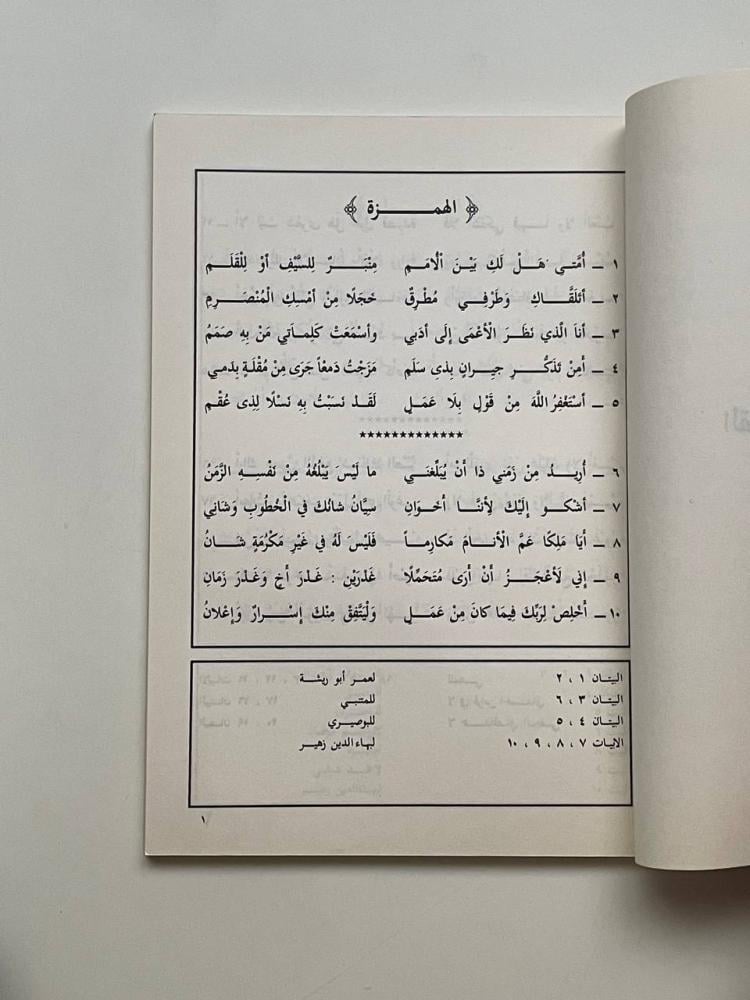 ﴿ الهمـــزة ﴾
١ ــ أُمَّتـي هَـلْ لَكِ بَيْـنَ الْأُمَـمِ مِنْبَـرٌ لِلسَّيْفِ أَوْ لِلْقَلَـمِ
٢ ــ أَتَلَقَّـاكِ وَطَرْفِـي مُطْرِقٌ خَجَلًا مِنْ أَمْسِكِ الْمُنْصَـرِمِ
٣ ــ أنـا الَّذي نَظَـرَ الْأَعْمَى إلى أدَبي وأسْمَعَتْ كَلِمـاتي مَنْ بِهِ صَمَمُ
٤ ــ أَمِنْ تَذَكُّـرِ جيـرانٍ بِذِي سَلَمِ مَزَجْتُ دَمعاً جَرَى مِنْ مُقْلَةٍ بِدَمي
٥ ــ أسْتَغْفِرُ اللَّهَ مِنْ قَوْلٍ بِلَا عَمَـلٍ لَقَدْ نَسَبْتُ بِهِ نَسْلًا لِذِى عُقْمِ
*************
٦ ــ أُرِيـدُ مِنْ زَمَني ذا أَنْ يُبَلِّغَني ما لَيْسَ يَبْلُغُهُ مِنْ نَفْسِـهِ الزَّمَنُ
٧ ــ أَشْكـو إِلَيْكَ لِأَنَّنـا أَخَوَانِ سِيَّانُ شانُكَ في الْخُطُوبِ وَشَانِي
٨ ــ أَيَا مَلِكًا عَمَّ الْأَنـامَ مَكارِمـاً فَلَيْسَ لَهُ في غَيْرِ مَكْرُمَةٍ شـانُ
٩ ــ إِني لَأَعْجَـزُ أَنْ أَرَى مُتَحَمِّلًا غَدْرَيْنِ : غَـدْرَ أخٍ وَغَدْرَ زَمَانِ
١٠ــ أَخْلِصْ لِرَبِّكَ فِيمَا كَانَ مِنْ عَمَـلٍ وَلْيَتَّفِقْ مِنْكَ إِسْـرارٌ وَإِعْلانُ
البيتـان ١ ، ٢ لعمر أبو ريشة
البيتـان ٣ ، ٦ للمتنبـي
البيتـان ٤ ، ٥ للبوصيـري
الأبيـات ٧ ، ٨ ، ٩ ، ١٠ لبهاء الدين زهيـر
١